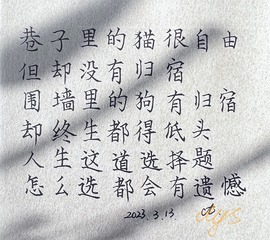 巷子里的猫很自由
但却没有归宿
围墙里的狗有归宿
却终生都得低头
人生这道选择题
怎么选都会有遗憾
2023.3.13